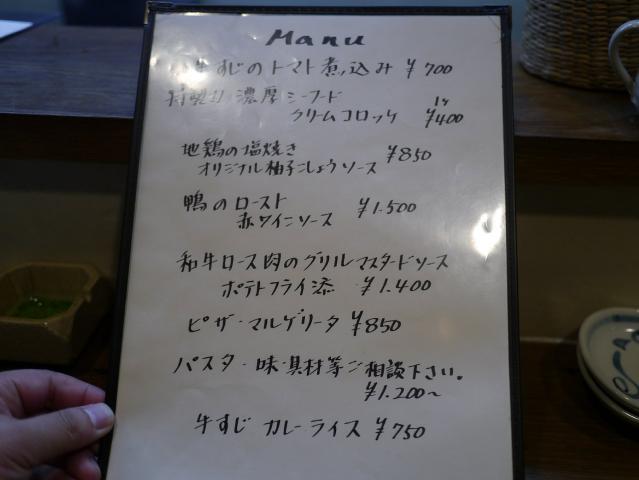 Manu
牛すじのトマト煮込み ¥700
特製 濃厚シーフード
クリームコロッケ 1ケ ¥400
地鶏の塩焼き ¥850
オリジナル柚子こしょうソース
鴨のロースト ¥1.500
赤ワインソース
和牛ロース肉のグリルマスタードソース
ポテトフライ添 ¥1.400
ピザ・マルゲリータ ¥850
パスタ・味・具材等ご相談下さい。
¥1.200〜
牛すじ カレーライス ¥750